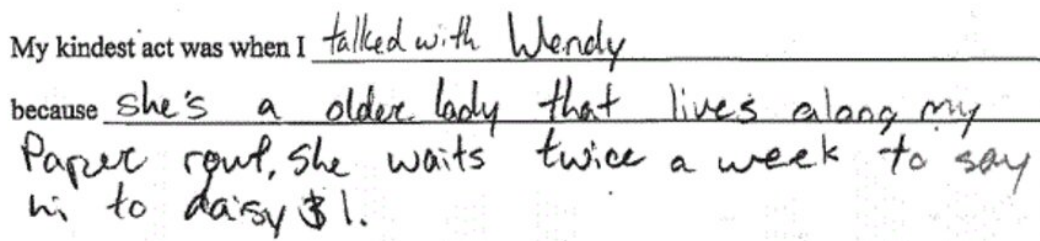 My kindest act was when I talked with Wendy
because she's a older lady that lives along my
Paper rout, She waits twice a week to say
hi to daisy & I.